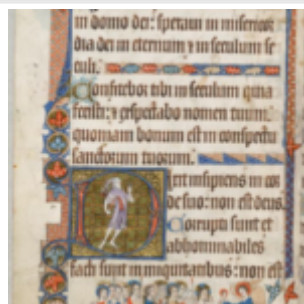 in domo dei: speraui in misericor
dia dei in eternum ⁊ in seculum se
culi.
Confitebor tibi in seculum quia
fecisti: ⁊ expectabo nomen tuum:
quoniam bonum est in conspectu
sanctorum tuorum.
Dixit insipiens in cor
de suo: non est deus.
Corrupti sunt et
abhominabiles
facti sunt in iniquitatibus: non est